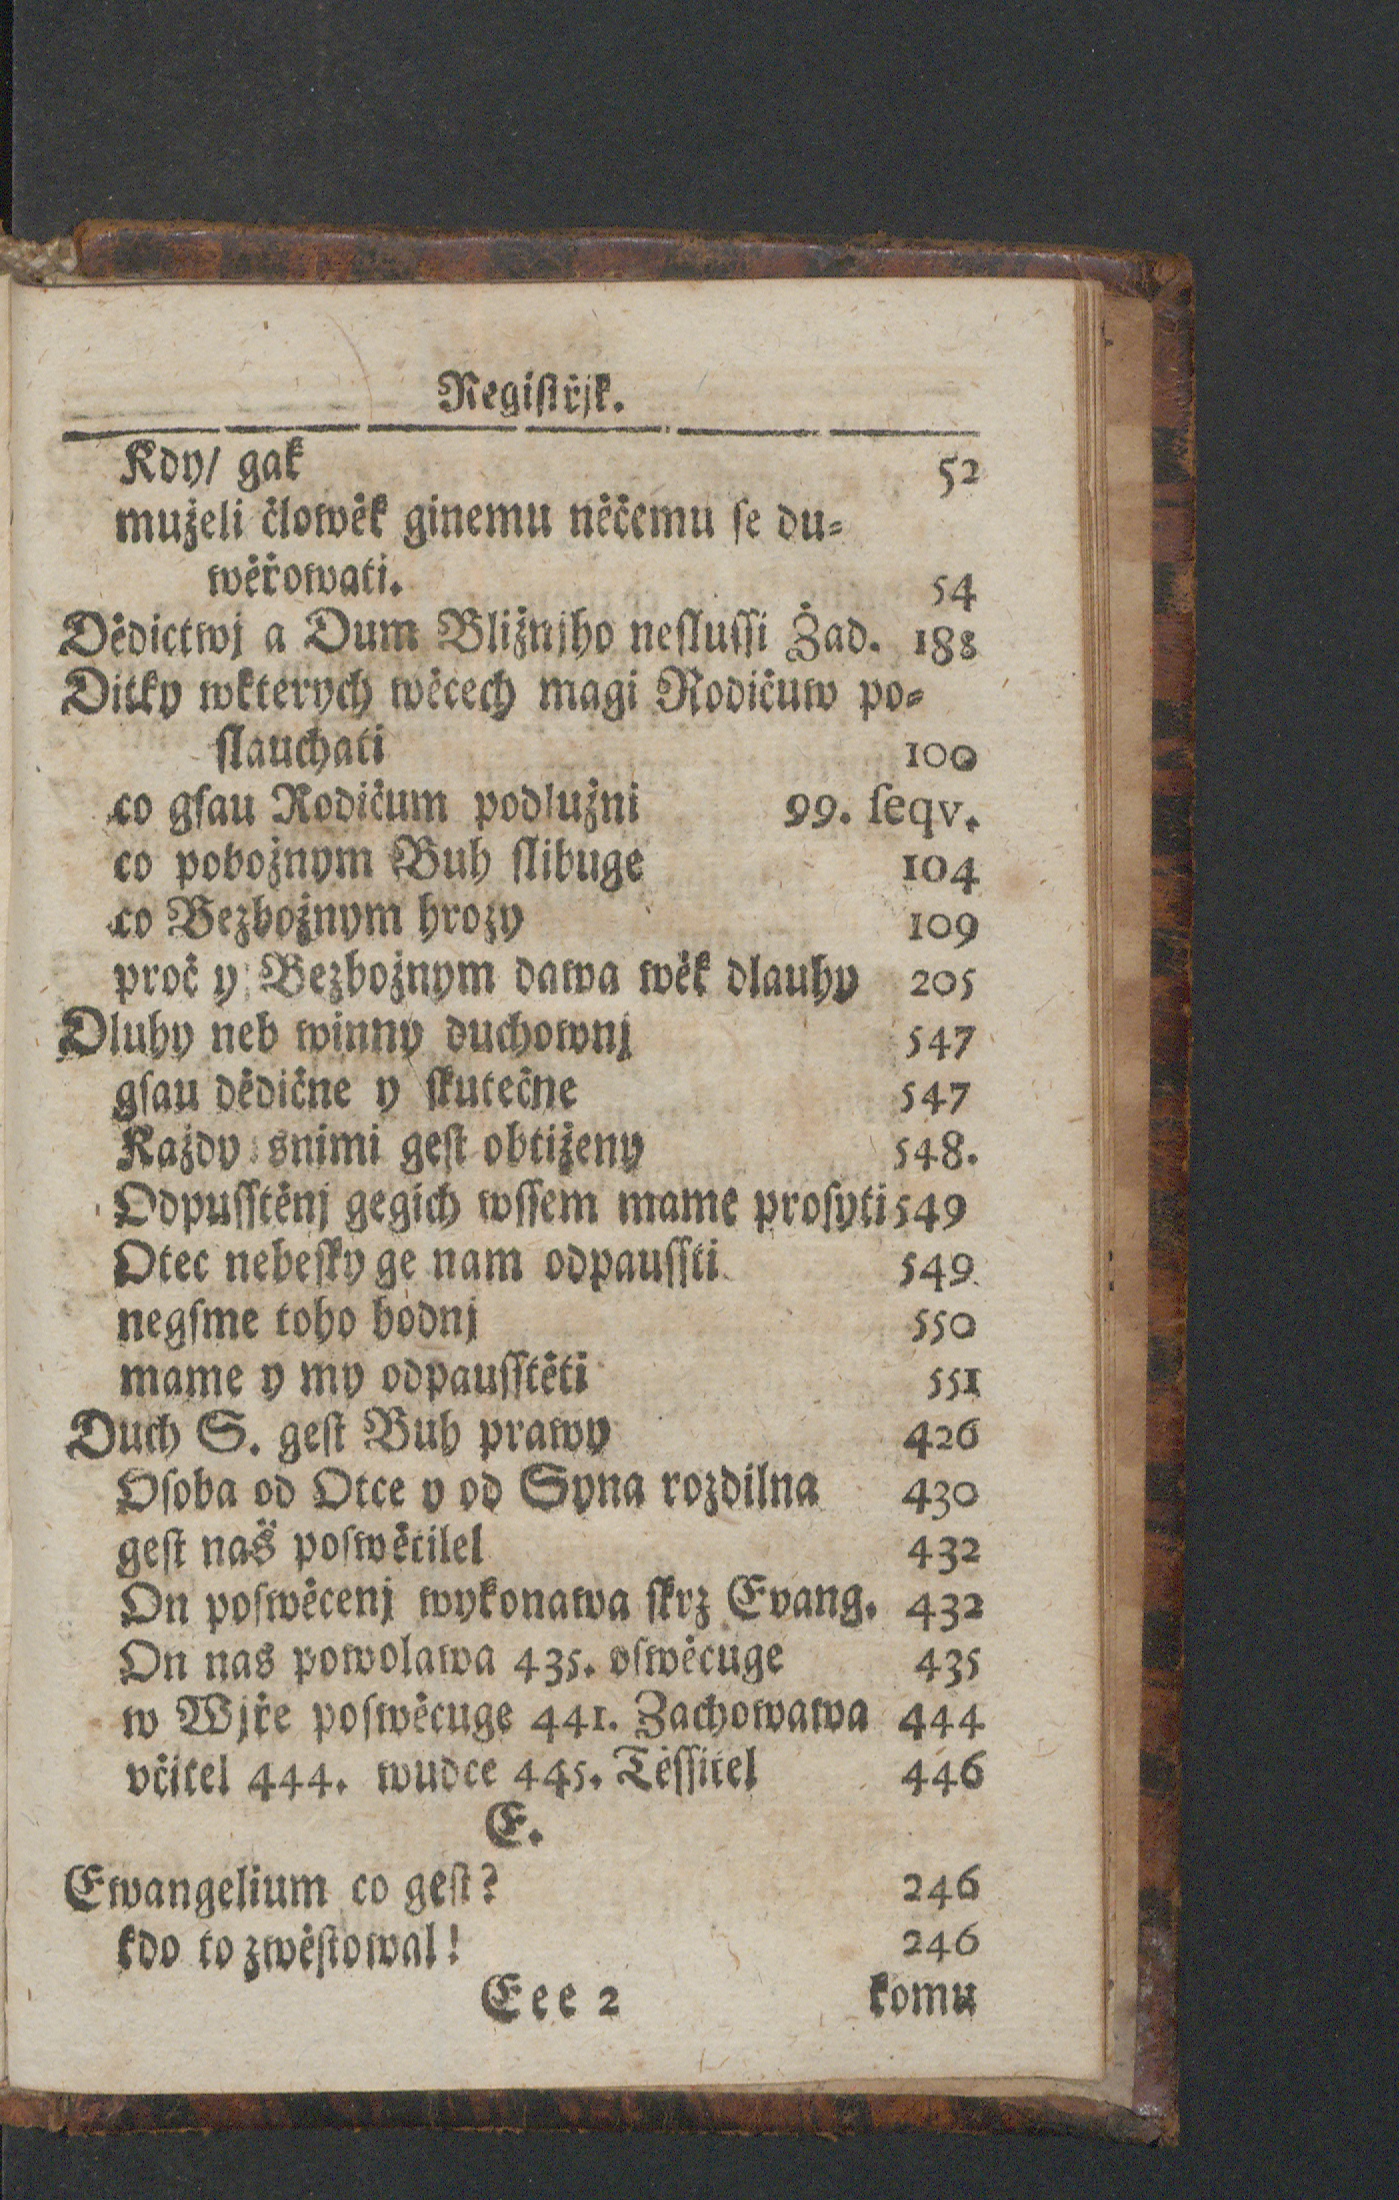 Regiſtřjk.
Kdy/ gak 52
muželi člowěk ginemu něčemu ſe du⸗
wěřowati. 54
Dědictwj a Dum Bližnjho neſluſſi Žad. 188
Ditky wkterych wěcech magi Rodičuw po⸗
ſlauchati 100
co gſau Rodičum podlužni 99. ſeqv.
co pobožnym Buh ſlibuge 104
co Bezbožnym hrozy 109
proč y Bezbožnym dawa wěk dlauhy 205
Dluhy neb winny duchownj 547
gſau dědične y ſkutečne 547
Každy snimi geſt obtiženy 548.
Odpuſſtěnj gegich wſſem mame proſyti 549
Otec nebeſky ge nam odpauſſti 549
negſme toho hodnj 550
mame y my odpauſſtěti 551
Duch S. geſt Buh prawy 426
Oſoba od Otce y od Syna rozdilna 430
geſt naš poſwětilel 432
On poſwěcenj wykonawa ſkrz Evang. 432
On nas powolawa 435. oſwěcuge 435
w Wjře poſwěcuge 441. Zachowawa 444
včitel 444. wudce 445. Těſſitel 446
E.
Ewangelium co geſt? 246
kdo to zwěſtowal! 246
Eee 2 komu